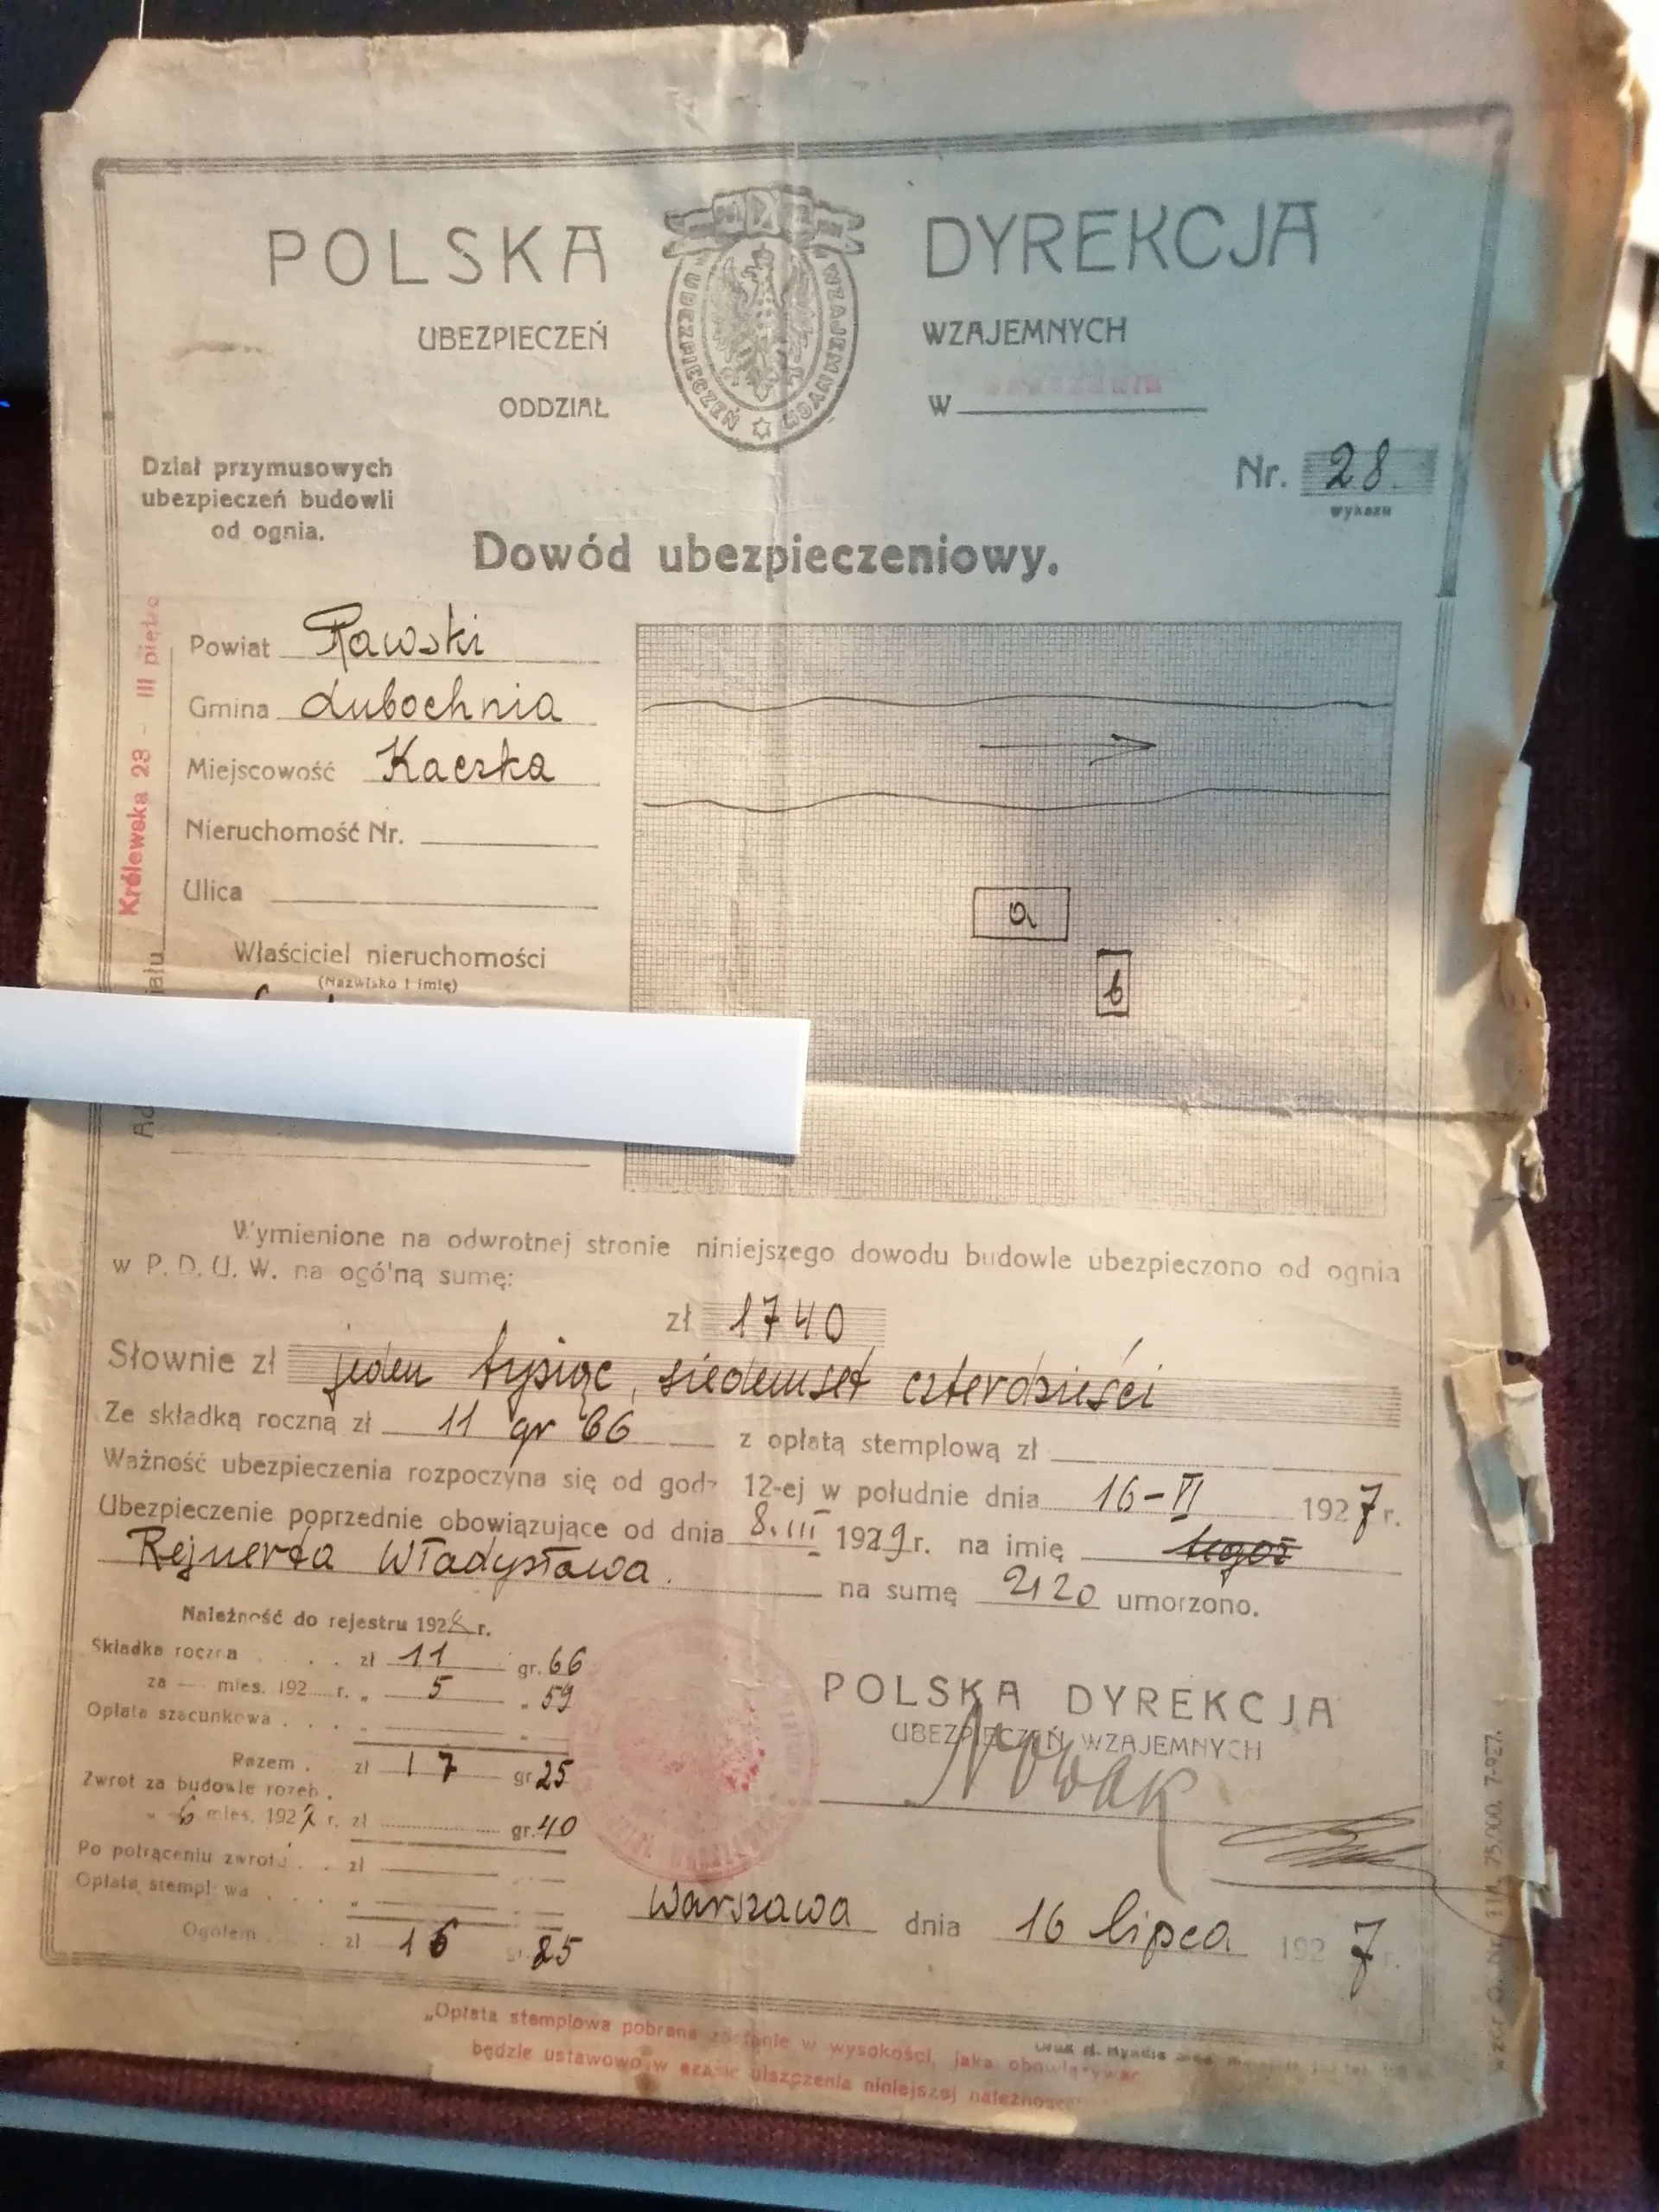 POLSKA DYREKCJA
UBEZPIECZEŃ WZAJEMNYCH
UBEZPIECZEŃ WZAJEMNYCH
ODDZIAŁ W
Dział przymusowych
ubezpieczeń budowli
od ognia.
Nr. 28.
wykazu
Dowód ubezpieczeniowy.
Królewska 23 - III piętro
Powiat Rawski
Gmina Lubochnia
Miejscowość Kaczka
Nieruchomość Nr.
Ulica
Właściciel nieruchomości
(Nazwisko i imię)
a
b
Wymienione na odwrotnej stronie niniejszego dowodu budowle ubezpieczono od ognia
w P. D. U. W. na ogólną sumę:
zł 1740
Słownie zł jeden tysiąc, siedemset czterdzieści
Ze składką roczną zł 11 gr 66 z opłatą stemplową zł
Ważność ubezpieczenia rozpoczyna się od godz 12-ej w południe dnia 16-VI 1927 r.
Ubezpieczenie poprzednie obowiązujące od dnia 8.III 1929 r. na imię tegoż
Rejnerta Władysława. na sumę 2120 umorzono.
Należność do rejestru 1928 r.
Składka roczna . . . . zł 11 gr. 66
za — mies. 192 r. „ 5 „ 59
Opłata szacunkowa . . . „ „
Razem . zł 17 gr 25
Zwrot za budowle rozeb.
„ 6 mies. 1927 r. zł gr. 40
Po potrąceniu zwrotu . . zł
Opłata stempl wa . . . „
Ogółem . . . zł 16 gr. 85
POLSKA DYREKCJA
UBEZPIECZEŃ WZAJEMNYCH
Nowak
Warszawa dnia 16 lipca 1927 r.
„Opłata stemplowa pobrana zostanie w wysokości, jaka obowiązywać
będzie ustawowo w czasie uiszczenia niniejszej należności"
75.000. 7-927.